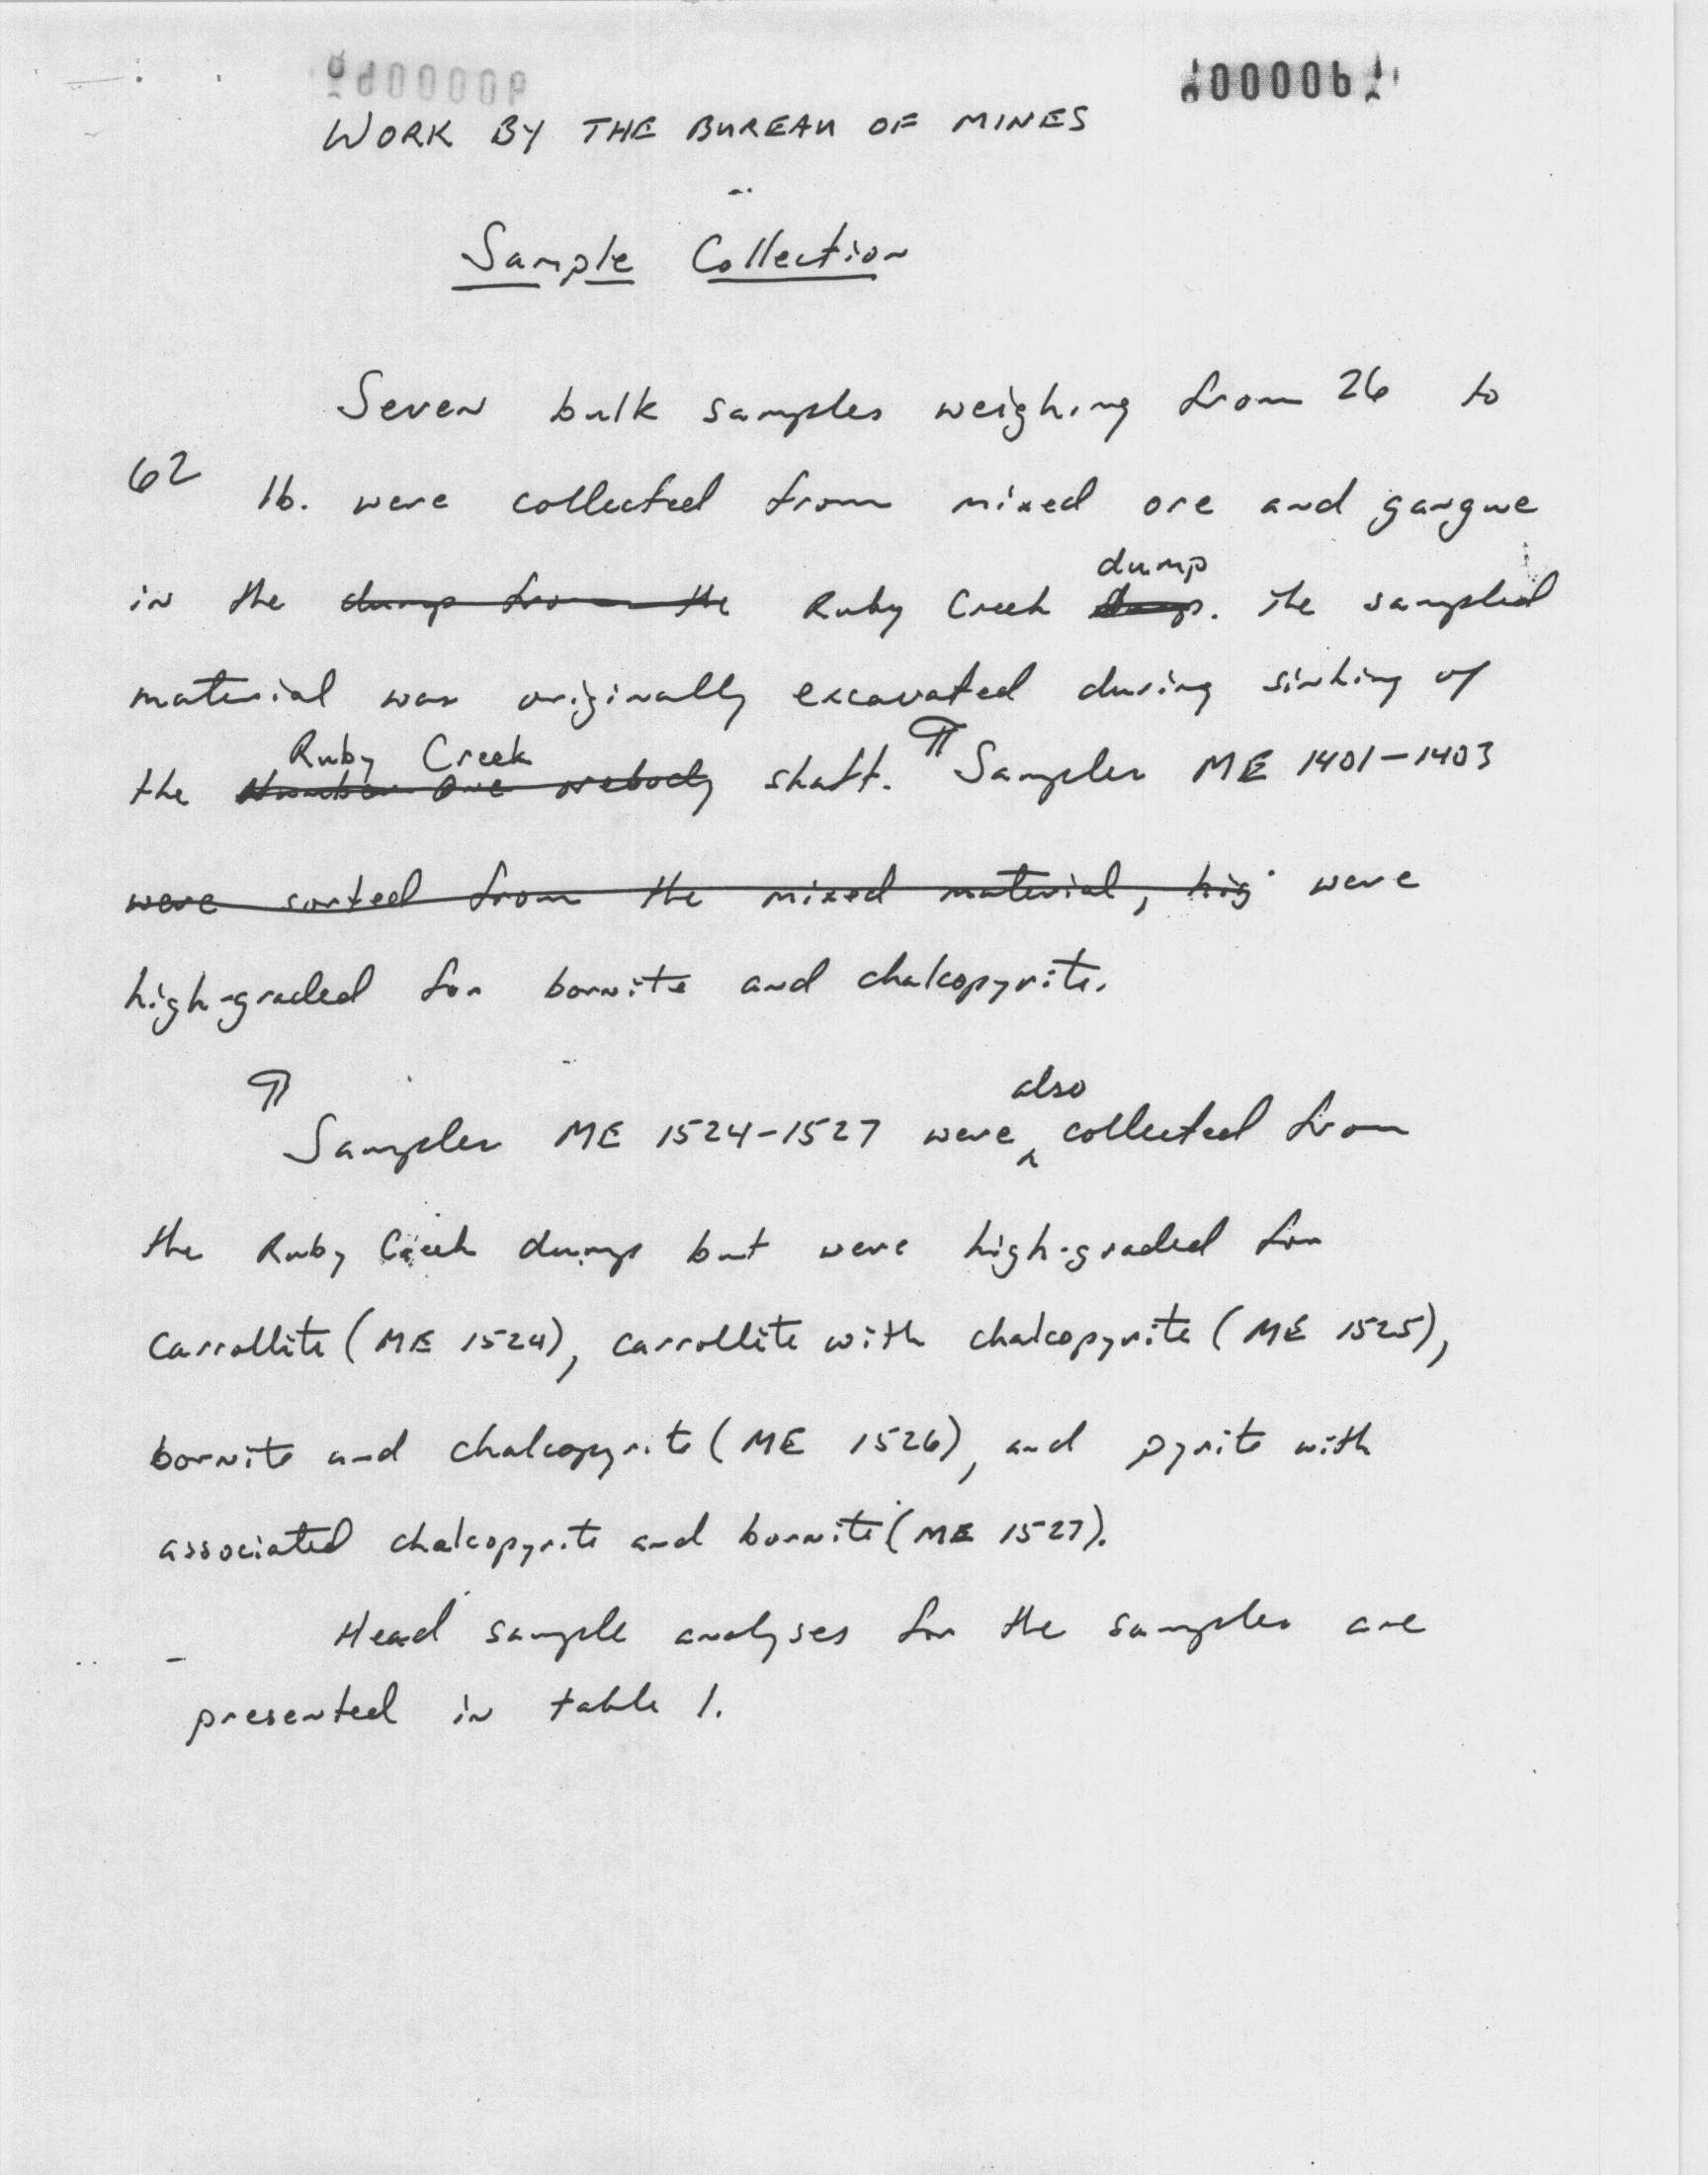 WORK BY THE BUREAU OF MINES
Sample Collection
Seven bulk samples weighing from 26 to
62 lb. were collected from mixed ore and gangue
dump
in the dump from the Ruby Creek dumps. The sampled
material was originally excavated during sinking of
Ruby Creek
the Number One orebody shaft. ¶ Samples ME 1401-1403
were sorted from the mixed material, hig were
high-graded for bornite and chalcopyrite.
also
¶ Samples ME 1524-1527 were ‸ collected from
the Ruby Creek dumps but were high-graded for
carrollite (ME 1524), carrollite with chalcopyrite (ME 1525),
bornite and chalcopyrite (ME 1526), and pyrite with
associated chalcopyrite and bornite (ME 1527).
Head sample analyses for the samples are
presented in table 1.